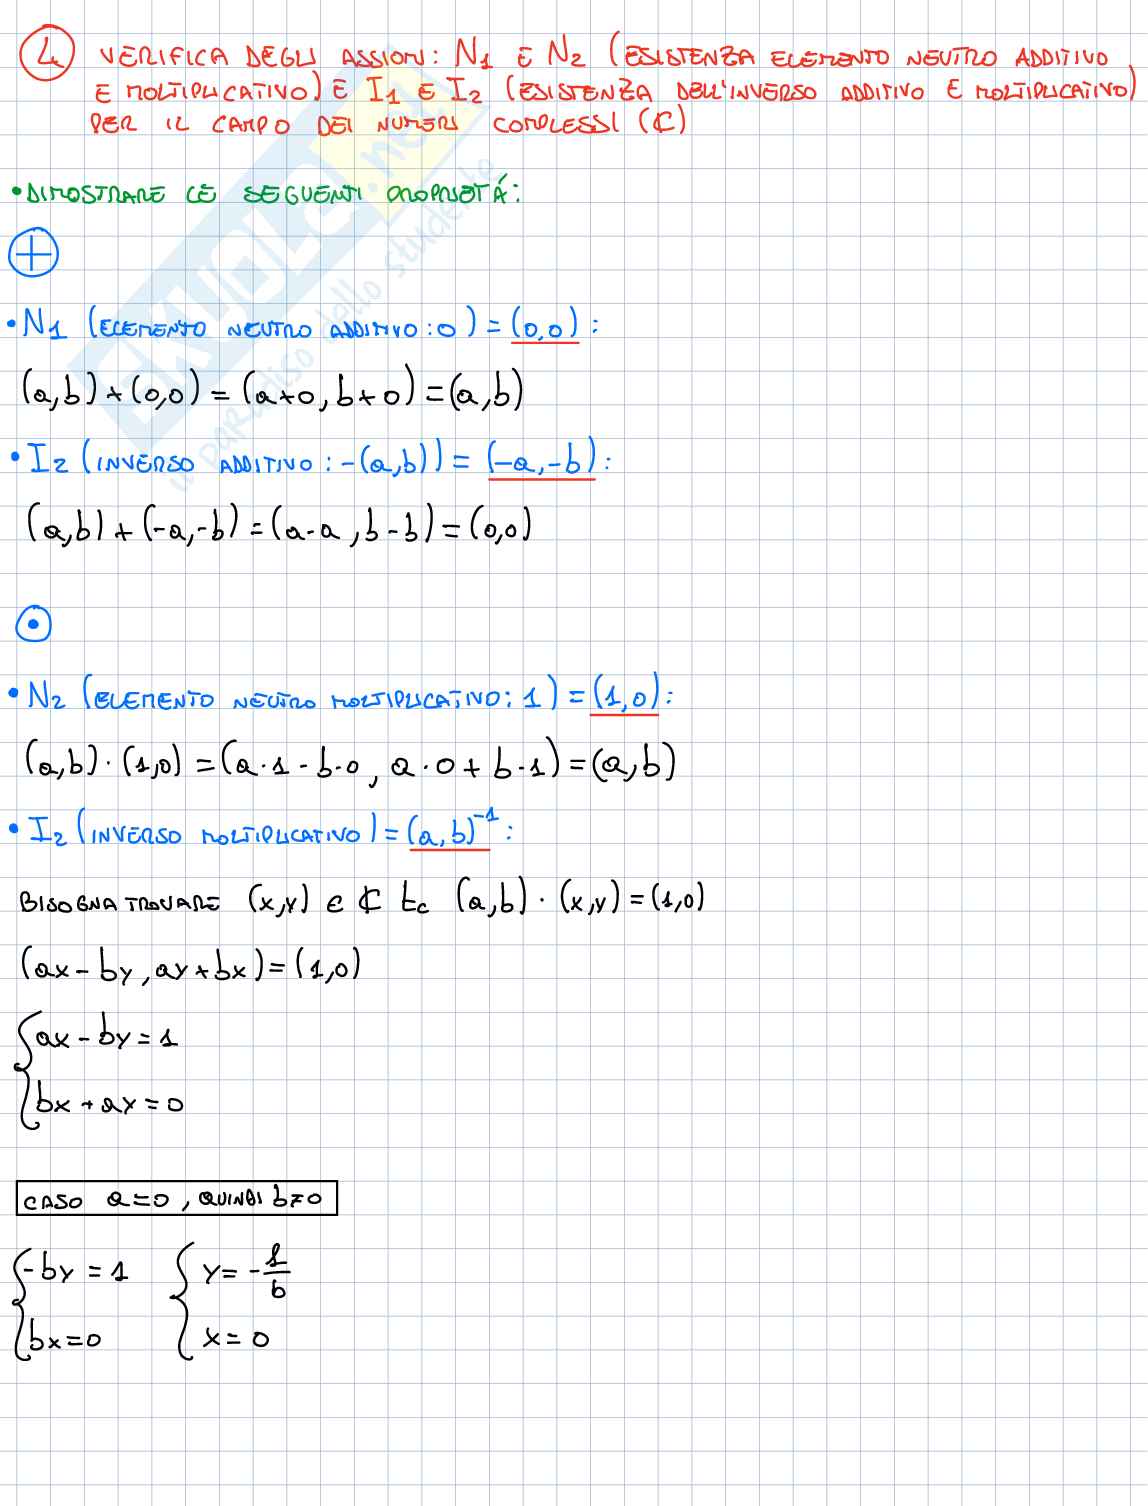 4 VERIFICA DEGLI ASSIOMI: N1 E N2 (ESISTENZA ELEMENTO NEUTRO ADDITIVO
E MOLTIPLICATIVO) E I1 E I2 (ESISTENZA DELL'INVERSO ADDITIVO E MOLTIPLICATIVO)
PER IL CAMPO DEI NUMERI COMPLESSI (ℂ)
• DIMOSTRARE LE SEGUENTI PROPRIETÁ:
⊕
• N1 (ELEMENTO NEUTRO ADDITIVO: 0) = (0,0):
(a,b) + (0,0) = (a+0, b+0) = (a,b)
• I2 (INVERSO ADDITIVO: -(a,b)) = (-a,-b):
(a,b) + (-a,-b) = (a-a, b-b) = (0,0)
⊙
• N2 (ELEMENTO NEUTRO MOLTIPLICATIVO: 1) = (1,0):
(a,b) · (1,0) = (a·1 - b·0, a·0 + b·1) = (a,b)
• I2 (INVERSO MOLTIPLICATIVO) = (a,b)⁻¹:
BISOGNA TROVARE (x,y) ∈ ℂ t.c (a,b) · (x,y) = (1,0)
(ax - by, ay + bx) = (1,0)
{ ax - by = 1
bx + ay = 0
CASO a=0, QUINDI b≠0
{ -by = 1 { y = -1/b
bx = 0 x = 0
SKUOLA.net
il paradiso dello studente